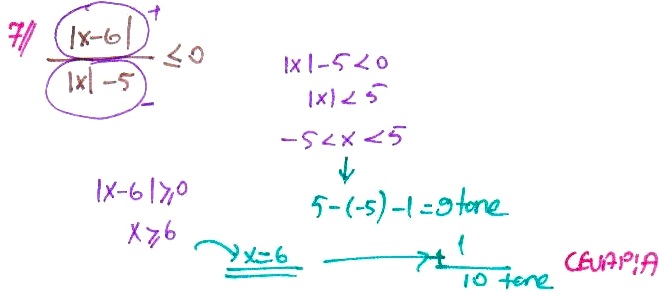 7// |x-6| / |x| - 5 ≤ 0
+
-
|x| - 5 < 0
|x| < 5
-5 < x < 5
↓
5 - (-5) - 1 = 9 tane
|x-6| ≥ 0
x ≥ 6
→ x = 6 → + 1
10 tane
CEVAP: A